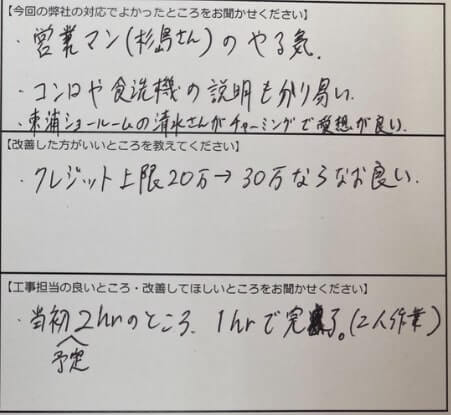 【今回の弊社の対応でよかったところをお聞かせください】
・営業マン(杉島さん)のやる気.
・コンロや食洗機の説明も分り易い.
・東浦ショールームの清水さんがチャーミングで愛想が良い.
【改善した方がいいところを教えてください】
・クレジット上限20万→30万ならなお良い.
【工事担当の良いところ・改善してほしいところをお聞かせください】
・当初2hrのところ、1hrで完了。(2人作業)
予定